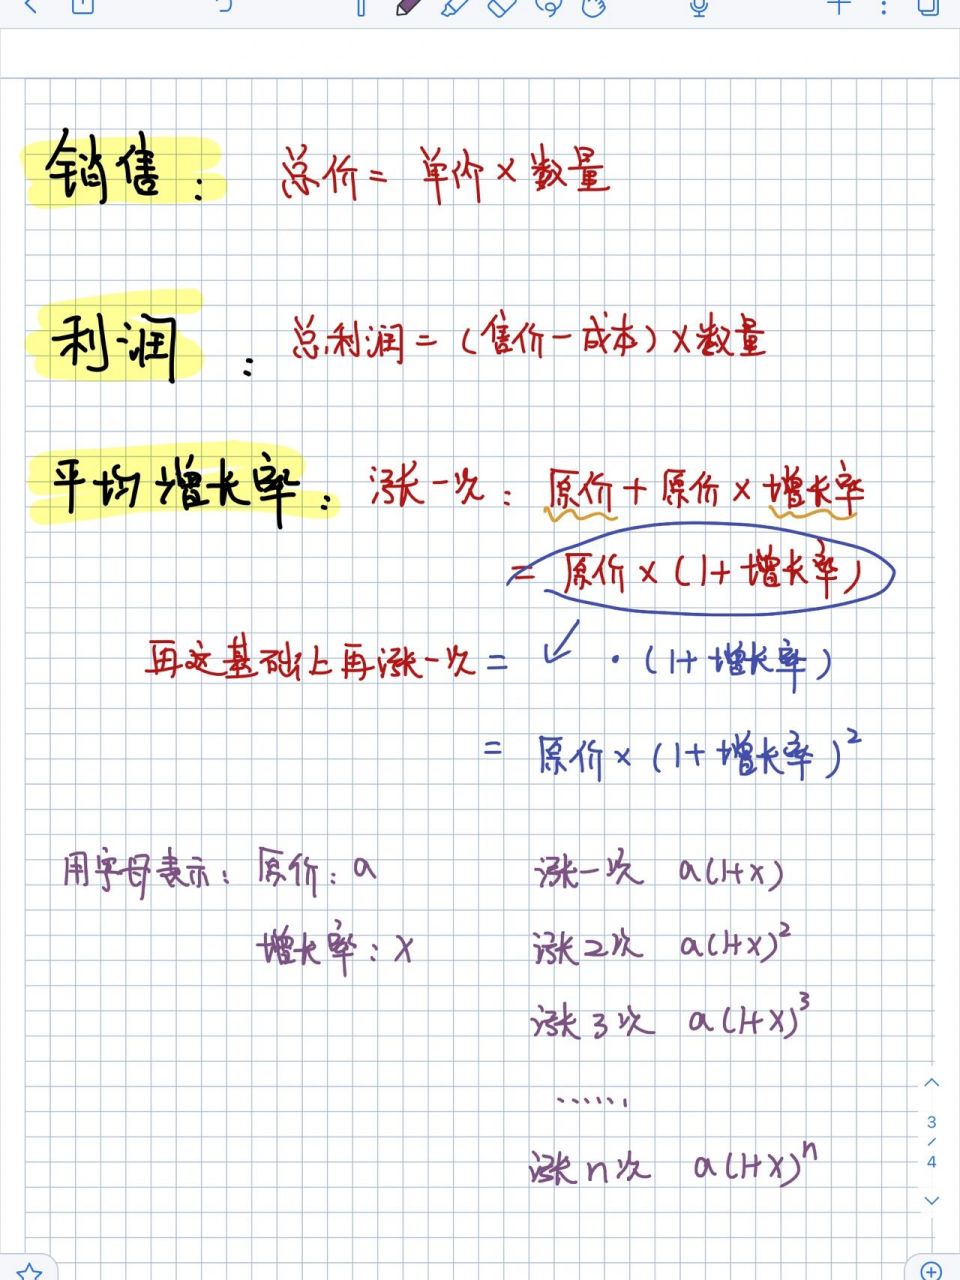 销售: 总价 = 单价 × 数量
利润: 总利润 = (售价 - 成本) × 数量
平均增长率: 涨一次: 原价 + 原价 × 增长率
= 原价 × (1 + 增长率)
再这基础上再涨一次 = · (1 + 增长率)
= 原价 × (1 + 增长率)²
用字母表示: 原价: a 涨一次 a(1+x)
增长率: x 涨2次 a(1+x)²
涨3次 a(1+x)³
……
涨n次 a(1+x)ⁿ
3
/
4